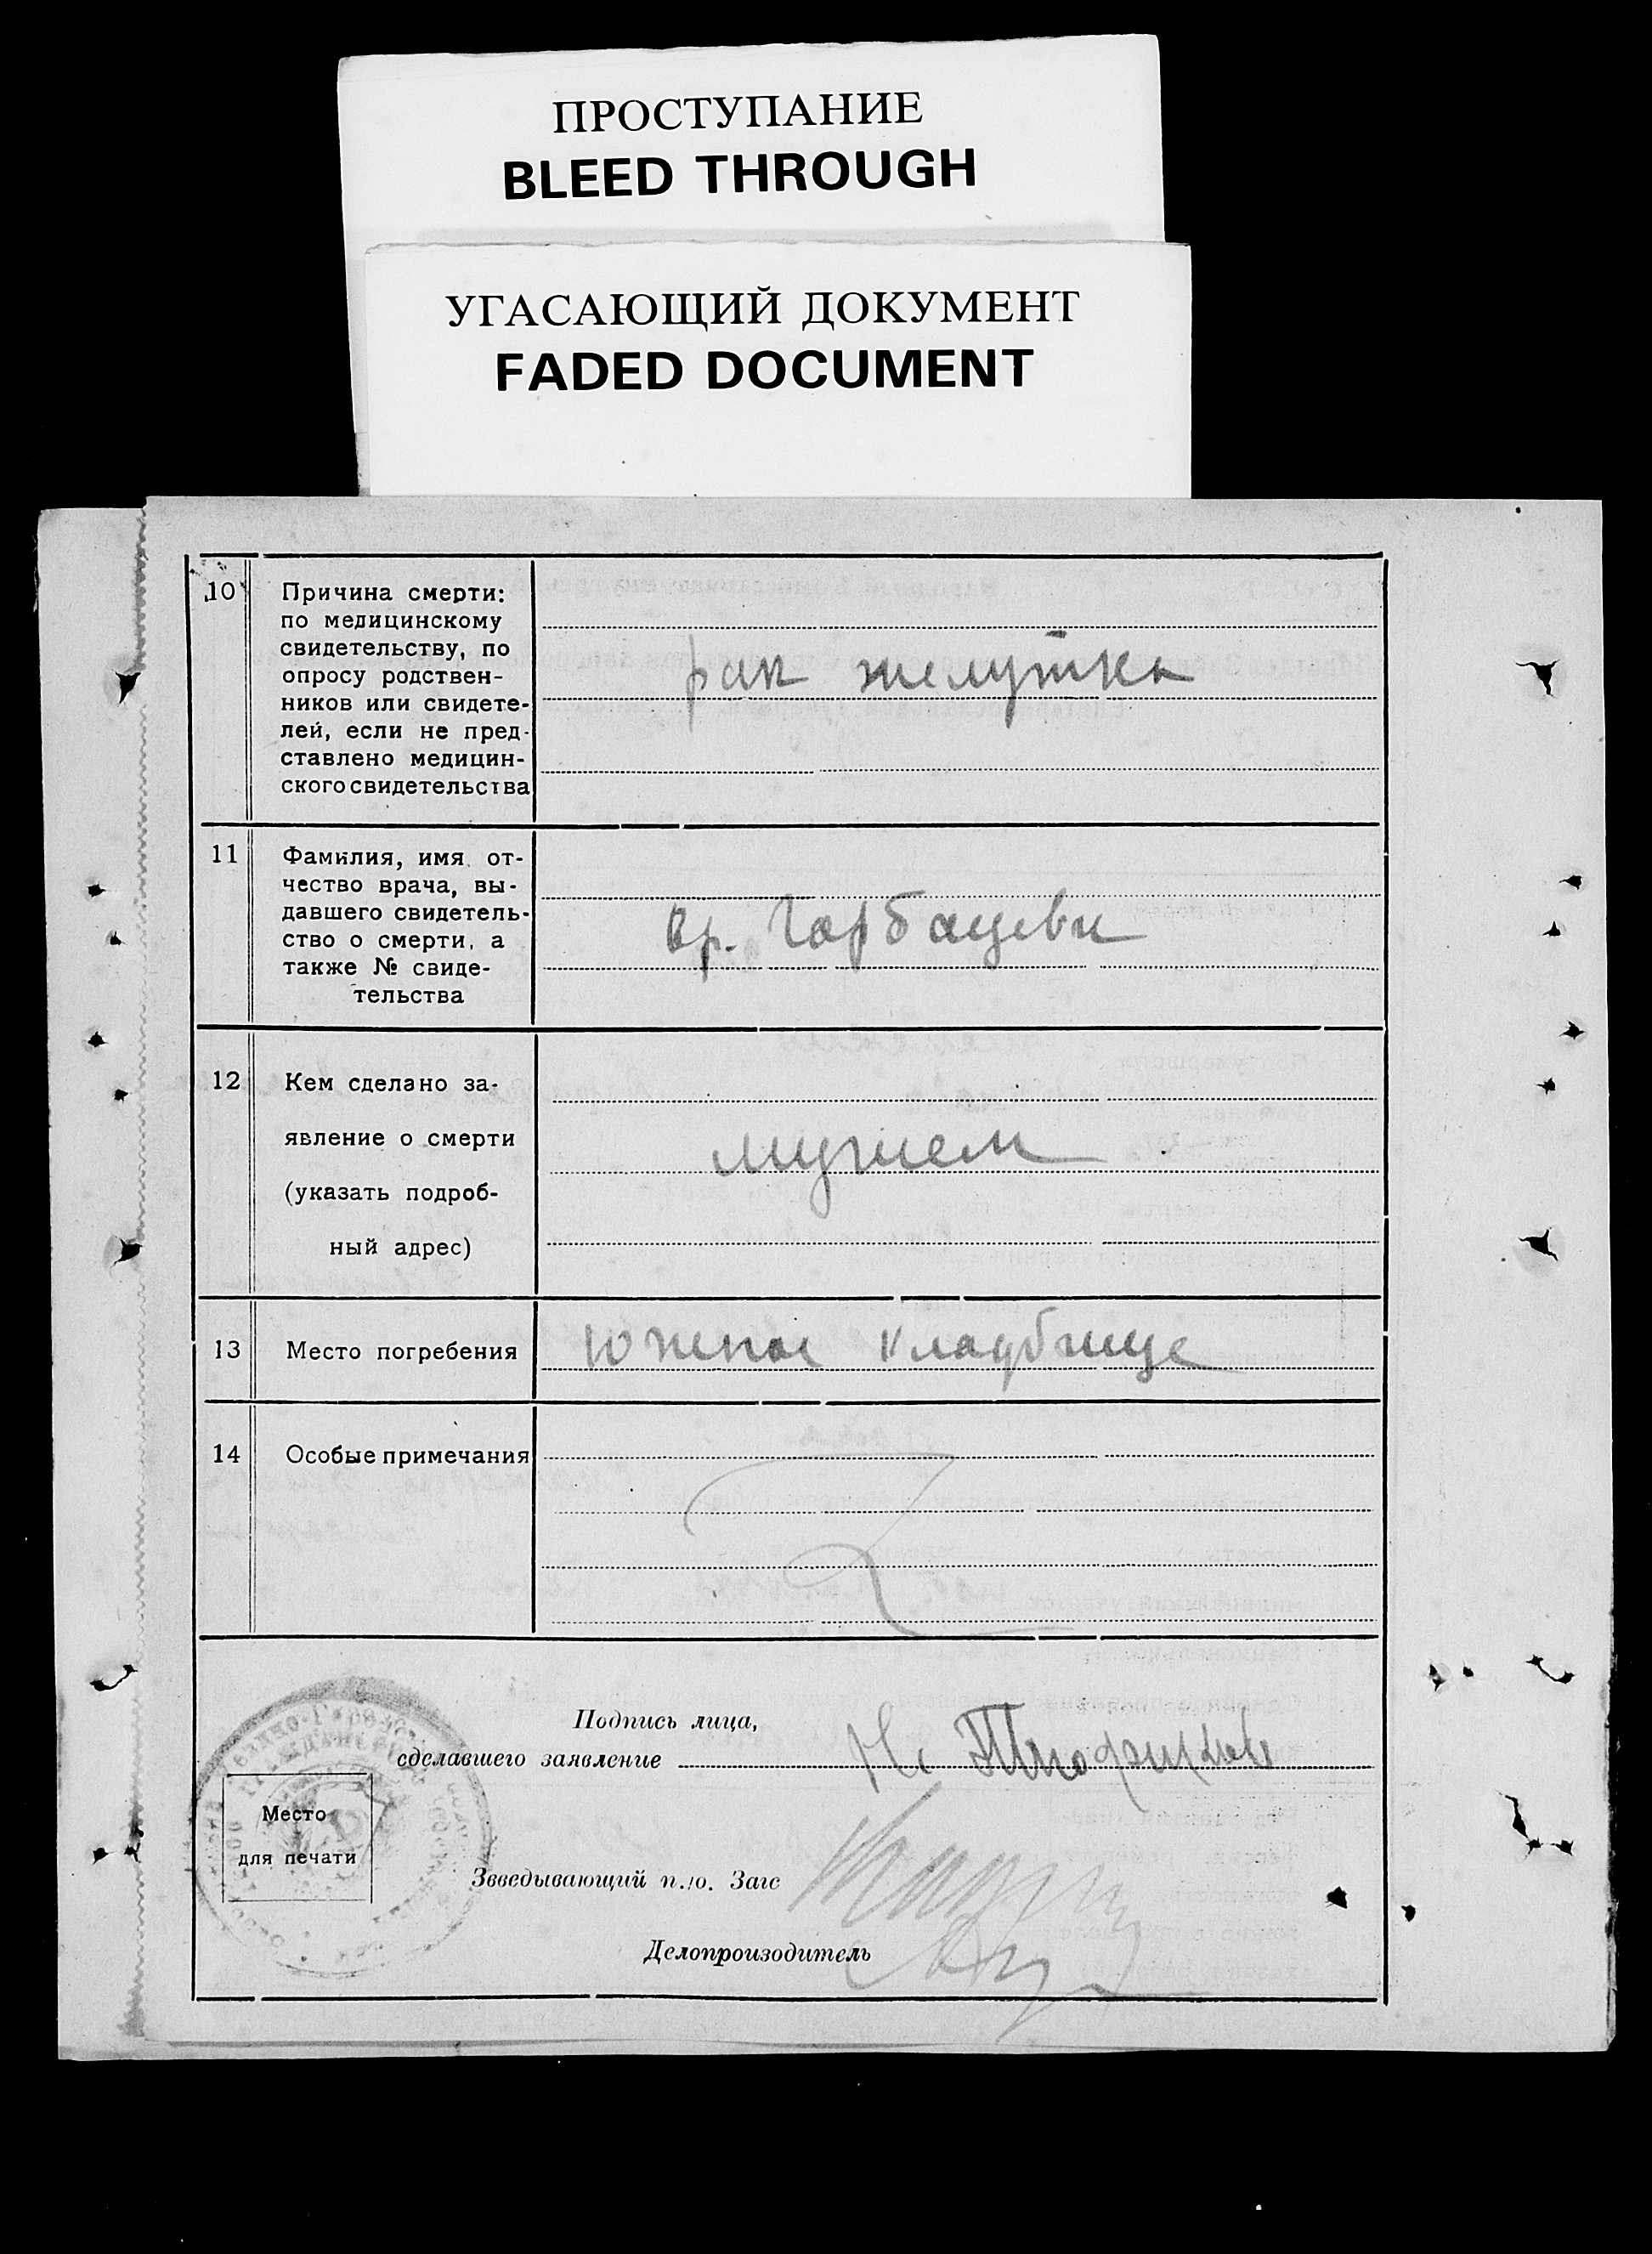 ПРОСТУПАНИЕ
BLEED THROUGH
УГАСАЮЩИЙ ДОКУМЕНТ
FADED DOCUMENT
10
Причина смерти:
по медицинскому
свидетельству, по
опросу родствен-
ников или свидете-
лей, если не пред-
ставлено медицин-
ского свидетельства
рак желутка
11
Фамилия, имя, от-
чество врача, вы-
давшего свидетель-
ство о смерти, а
также № свиде-
тельства
вр.
12
Кем сделано за-
явление о смерти
(указать подроб-
ный адрес)
мужем
13
Место погребения
Южное кладбище
14
Особые примечания
Подпись лица,
сделавшего заявление
Место
для печати
Зведывающий п./о. Загс
Делопроизодитель